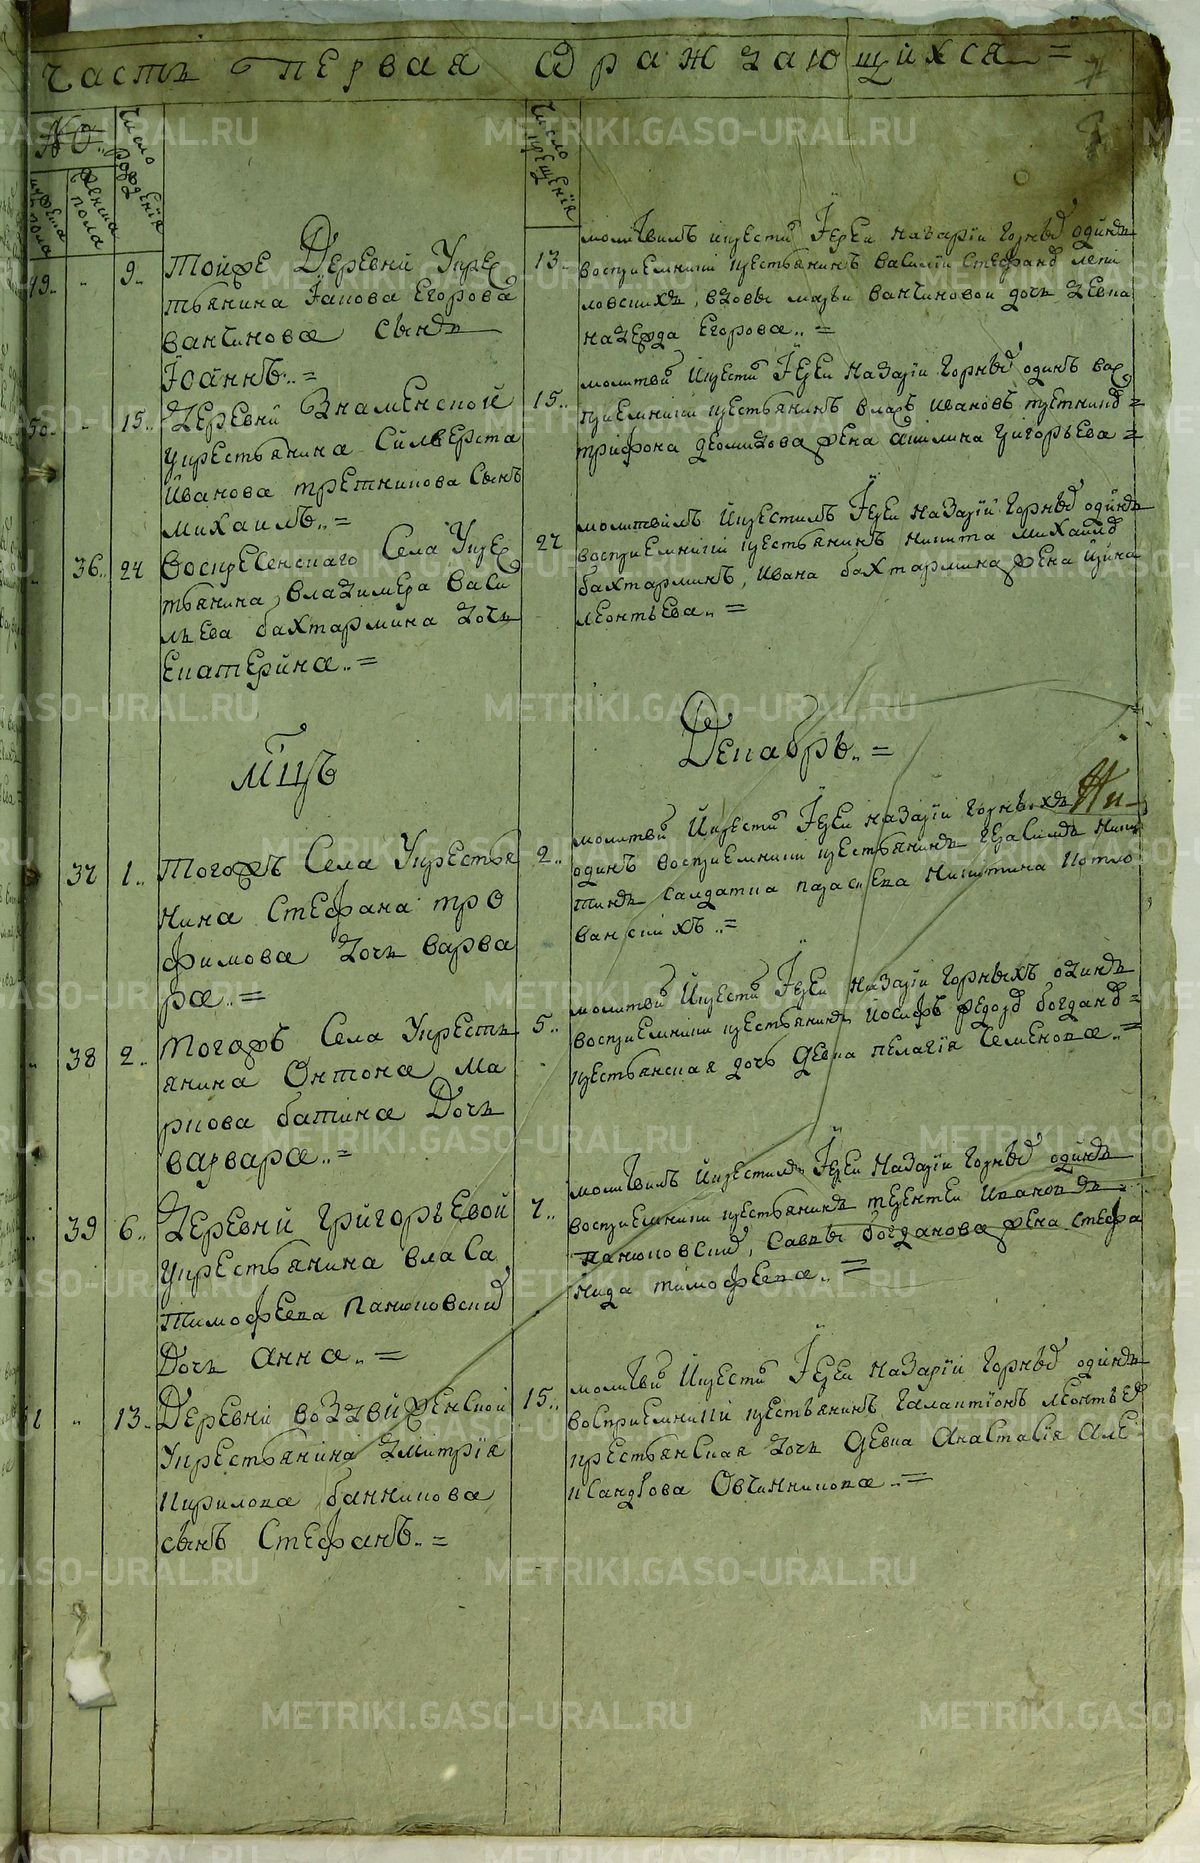 часть первая ѡ раждающихся =
№
Число рождения
мужеска пола
женска пола
Число крещения
49 .. 9..
тойже Деревни У кре
стьянина Iакова Егорова
Ванчинова сынъ
Iоаннъ.. =
13..
молитвилъ икрести Iерей Назарiи Горныхъ одинъ
восприемники крестьянинъ Василiи Стефановъ
ловскихъ, вдовы марьи Ванчиновои дочь девка
надежда Егорова.. =
50.. .. 15..
Деревни Знаменской
у крестьянина Силверста
Иванова третникова Сынъ
михаилъ.. =
15..
молитви Икрести Iерей Назарiи Горныхъ одинъ вос
приемники крестьянинъ власъ Ивановъ
трифона деомидова жена акилина григорьева =
36.. 24
Воспресенскаго Села У кре
стьянина, Владимера Васи
льева бахтармина дочь
Екатерина.. =
27
молитвилъ Икрестилъ Iерей Назарiй Горныхъ одинъ
восприемники крестьянинъ никита Михайловъ
бахтарминъ, Ивана бахтармина жена Ирина
леонтьева.. =
мцъ
Декабрь.. =
37 1..
тогожъ Села У крестья
нина Стефана тро
фимова дочь варва
ра.. =
2..
молитви Икрести Iерей Назарiи Горныхъ
одинъ восприемники крестьянинъ Герасимъ Ники
тинъ салдатка параскева Никитина Котло
ванскихъ.. =
38 2..
тогожъ Села У кресть
янина Онтона Ма
ркова батина Дочь
варвара.. =
5..
молитви Икрести Iерей Назарiи Горныхъ одинъ
восприемники крестьянинъ Иосифъ федоровъ богдановъ =
крестьянская дочь девка пелагiя Семенова.. =
39 6..
Деревни Григорьевой
у крестьянина власа
тимофеева панюковскихъ
Дочь Анна.. =
7..
молитвилъ Икрестилъ Iерей Назарiи Горныхъ одинъ
восприемники крестьянинъ терентеи Ивановъ
панюковских, Савы богданова жена стефа
нида тимофеева.. =
13..
Деревни воздвиженской
У крестьянина дмитрiя
Кирилова банникова
сынъ Стефанъ.. =
15..
молитви Икрести Iерей Назарiй Горныхъ одинъ
восприемники крестьянинъ Галактiонъ леонтьевъ
крестьянская дочь Девка Анастасiя Але
ксандрова Овчинникова.. =